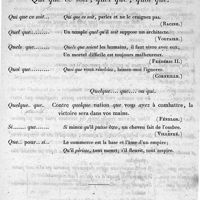 Qui que ce soit, quel que, quoi que.
Qui que ce soit... Qui que ce soit, parlez et ne le craignez pas.
(RACINE.)
Quel que... Un temple quel qu'il soit suppose un architecte.
(VOLTAIRE.)
Quels que... Quels que soient les humains, il faut vivre avec eux,
Un mortel difficile est toujours malheureux.
(FRÉDÉRIC II.)
Quoi que... Quoi que vous résolviez, laissez-moi l'ignorer.
(CORNEILLE.)
Quelque... que, ou qui.
Quelque. que. Contre quelque nation que vous ayez à combattre, la
victoire sera dans vos mains.
(FÉNELON.)
Si... que... Si mince qu'il puisse être, un cheveu fait de l'ombre.
(VILLEFRÉ.)
Que... pour... si... Le commerce est la base et l'âme d'un empire;
Qu'il périsse, tout meurt; s'il fleurit, tout respire.